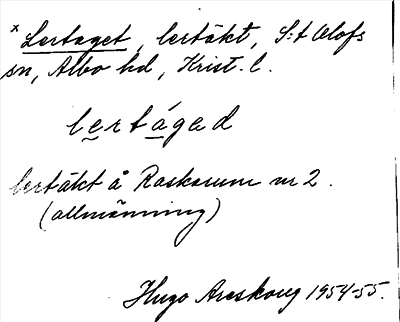 × Lertaget, lertäkt, S:t Olofs
sn, Albo hd, Krist. l.
lertágad
lertäkt å Raskarum nr 2.
(allmänning)
Hugo Areskoug 1954-55.